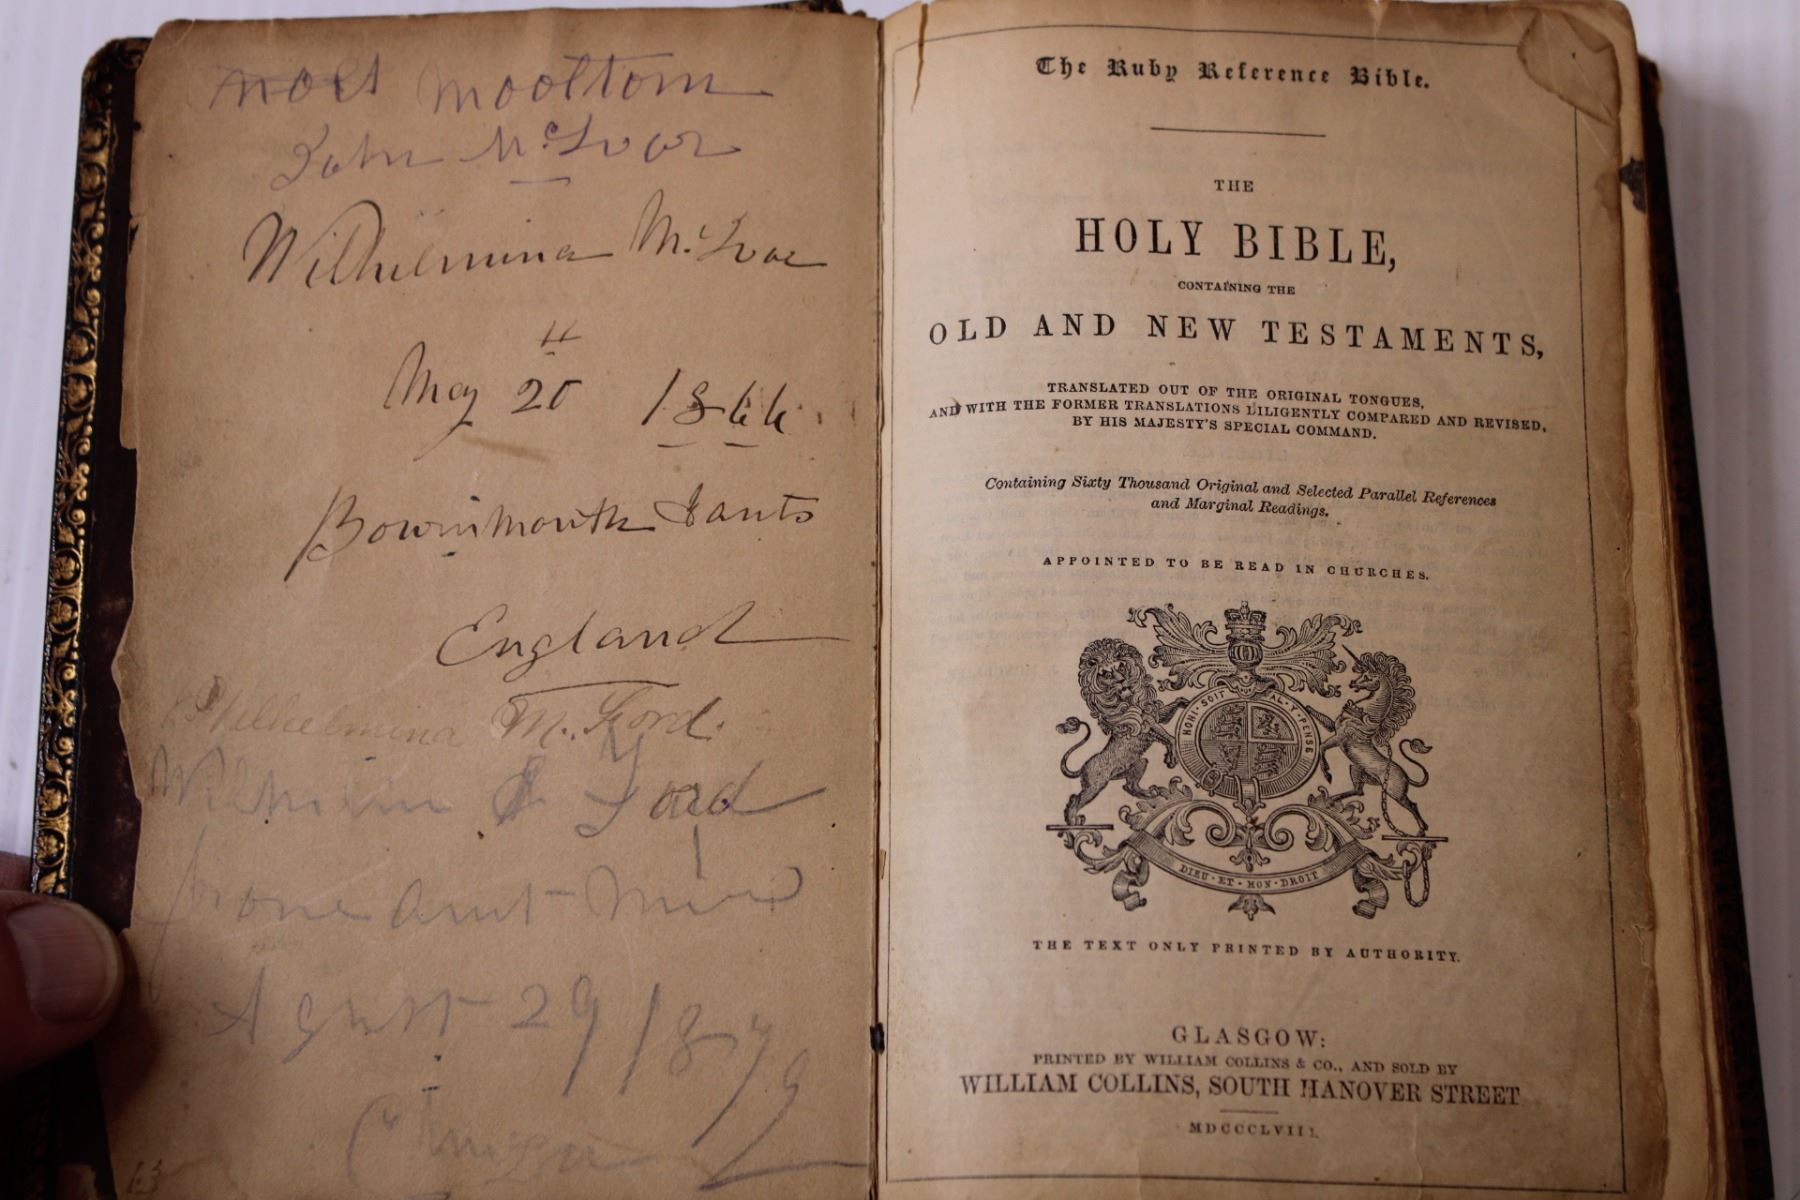 Mooltom
John McIvor
Wilhelmina McIvor
th
May 20 1866.
Bowinmouth Hants
England
Wilhelmina M. Ford.
Ford
from aunt
Agust 29 1879
The Ruby Reference Bible.
THE
HOLY BIBLE,
CONTAINING THE
OLD AND NEW TESTAMENTS,
TRANSLATED OUT OF THE ORIGINAL TONGUES,
AND WITH THE FORMER TRANSLATIONS DILIGENTLY COMPARED AND REVISED,
BY HIS MAJESTY'S SPECIAL COMMAND.
Containing Sixty Thousand Original and Selected Parallel References
and Marginal Readings.
APPOINTED TO BE READ IN CHURCHES.
HONI·SOIT AL·Y·PENSE
DIEU·ET·MON·DROIT
THE TEXT ONLY PRINTED BY AUTHORITY.
GLASGOW:
PRINTED BY WILLIAM COLLINS & CO., AND SOLD BY
WILLIAM COLLINS, SOUTH HANOVER STREET
MDCCCLVIII.